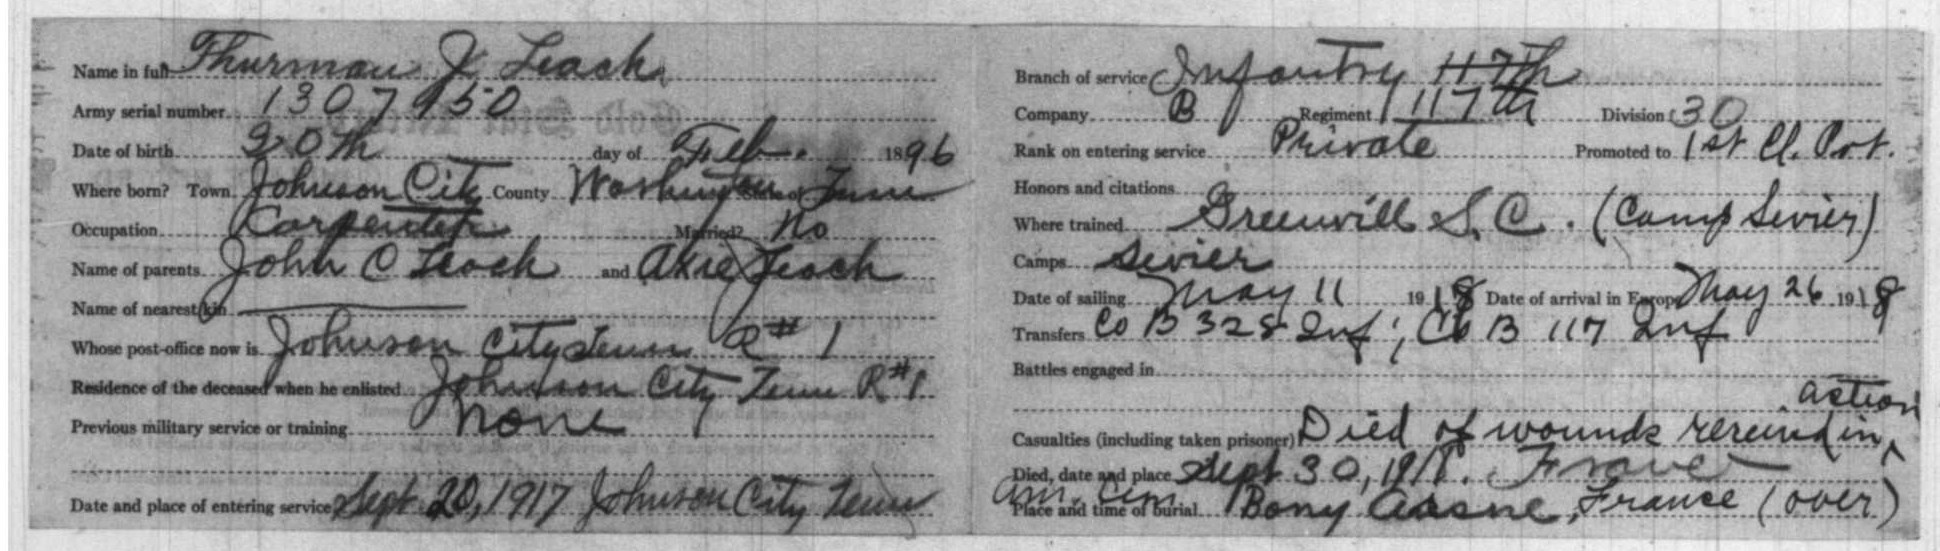 Name in full Thurman J Leach
Army serial number 1307950
Date of birth 20th day of Feb. 1896
Where born? Town Johnson City County Washington State of Tenn
Occupation Carpenter Married? No
Name of parents John C Leach and Leach
Name of nearest kin
Whose post-office now is Johnson City Tenn R# 1
Residence of the deceased when he enlisted Johnson City Tenn R#1
Previous military service or training None
Date and place of entering service Sept. 20, 1917 Johnson City Tenn
Branch of service Infantry 117th
Company B Regiment 117th Division 30
Rank on entering service Private Promoted to 1st Cl. Pvt.
Honors and citations
Where trained Greenvill S.C. (Camp Sevier)
Camps Sevier
Date of sailing May 11 1918 Date of arrival in Europe May 26 1918
Transfers Co B 328 Inf; Co B 117 Inf
Battles engaged in
action
Casualties (including taken prisoner) Died of wounds received in
Died, date and place Sept 30, 1918. France
Am. Cem.
Place and time of burial Bony Aasne, France (over)